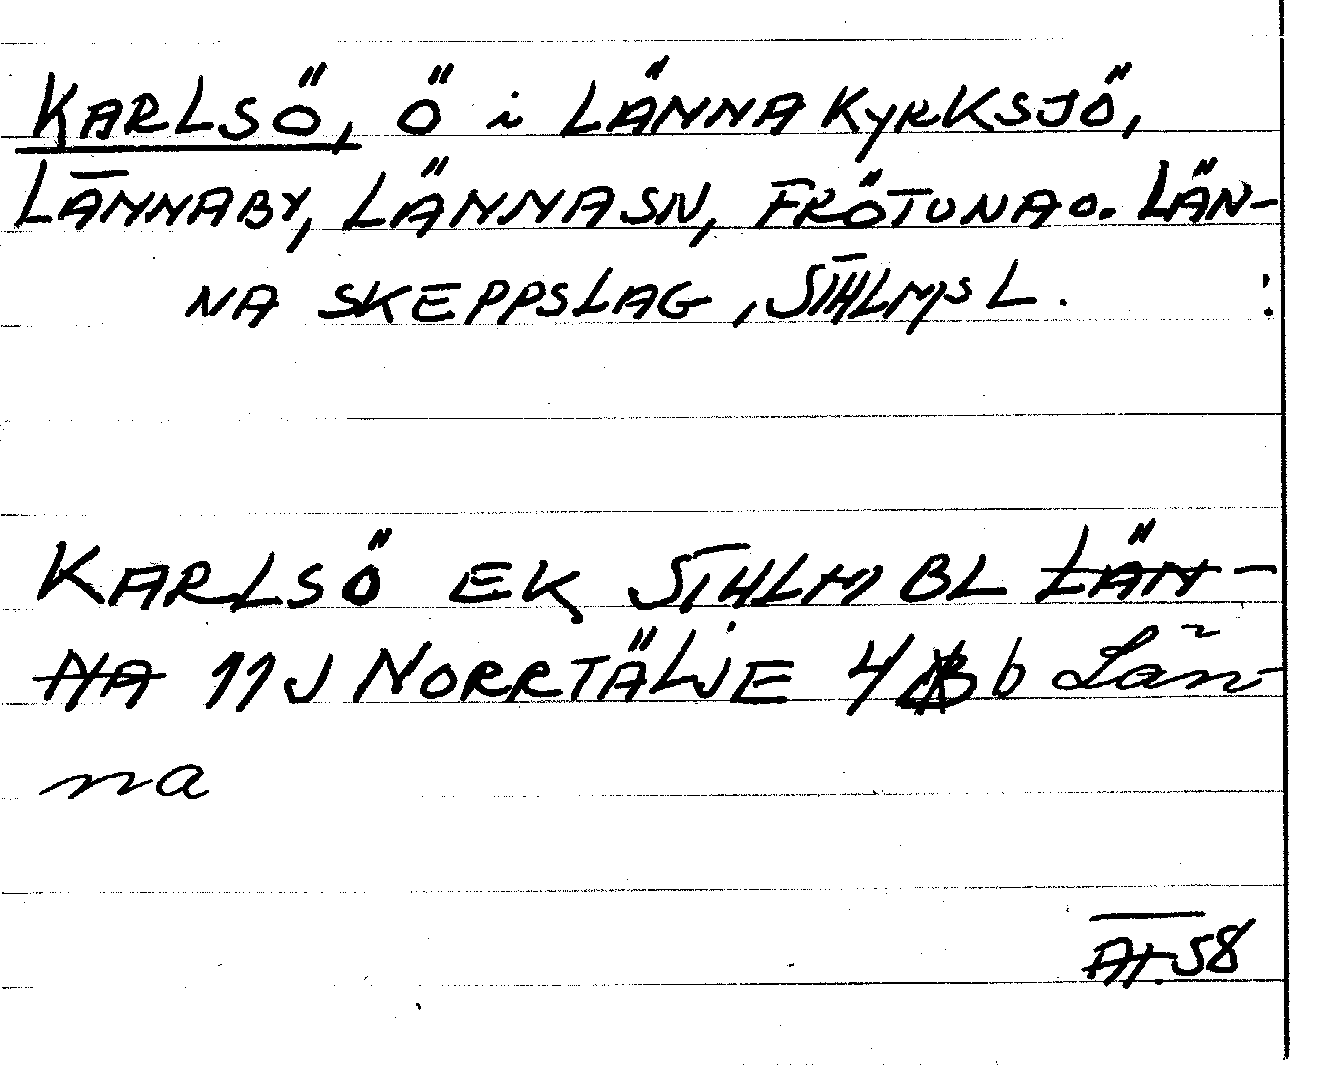 KARLSÖ, Ö i LÄNNA KYRKSJÖ,
LÄNNABY, LÄNNA SN, FRÖTUNA O. LÄN-
NA SKEPPSLAG, STHLMS L.
KARLSÖ EK STHLM BL LÄN-
NA 11J NORRTÄLJE 4 b Län-
na
AT. 58